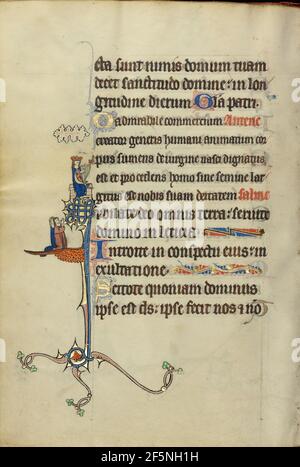 cta sunt nimis domum tuam
decet sanctitudo domine: in lon
gitudine dierum Gla patri.
O admirabile commercium Antene
creator generis humani animatum cor
pus sumens de uirgine nasci dignatus
est et procedens homo sine semine lar
gitus est nobis suam deitatem
ubilate deo omnis terra: seruite
domino in leticia
Introite in conspectu eius: in
exultatione
Scitote quoniam dominus
ipse est ds: ipse fecit nos et nō
www.alamy.com - 2F5NH1H